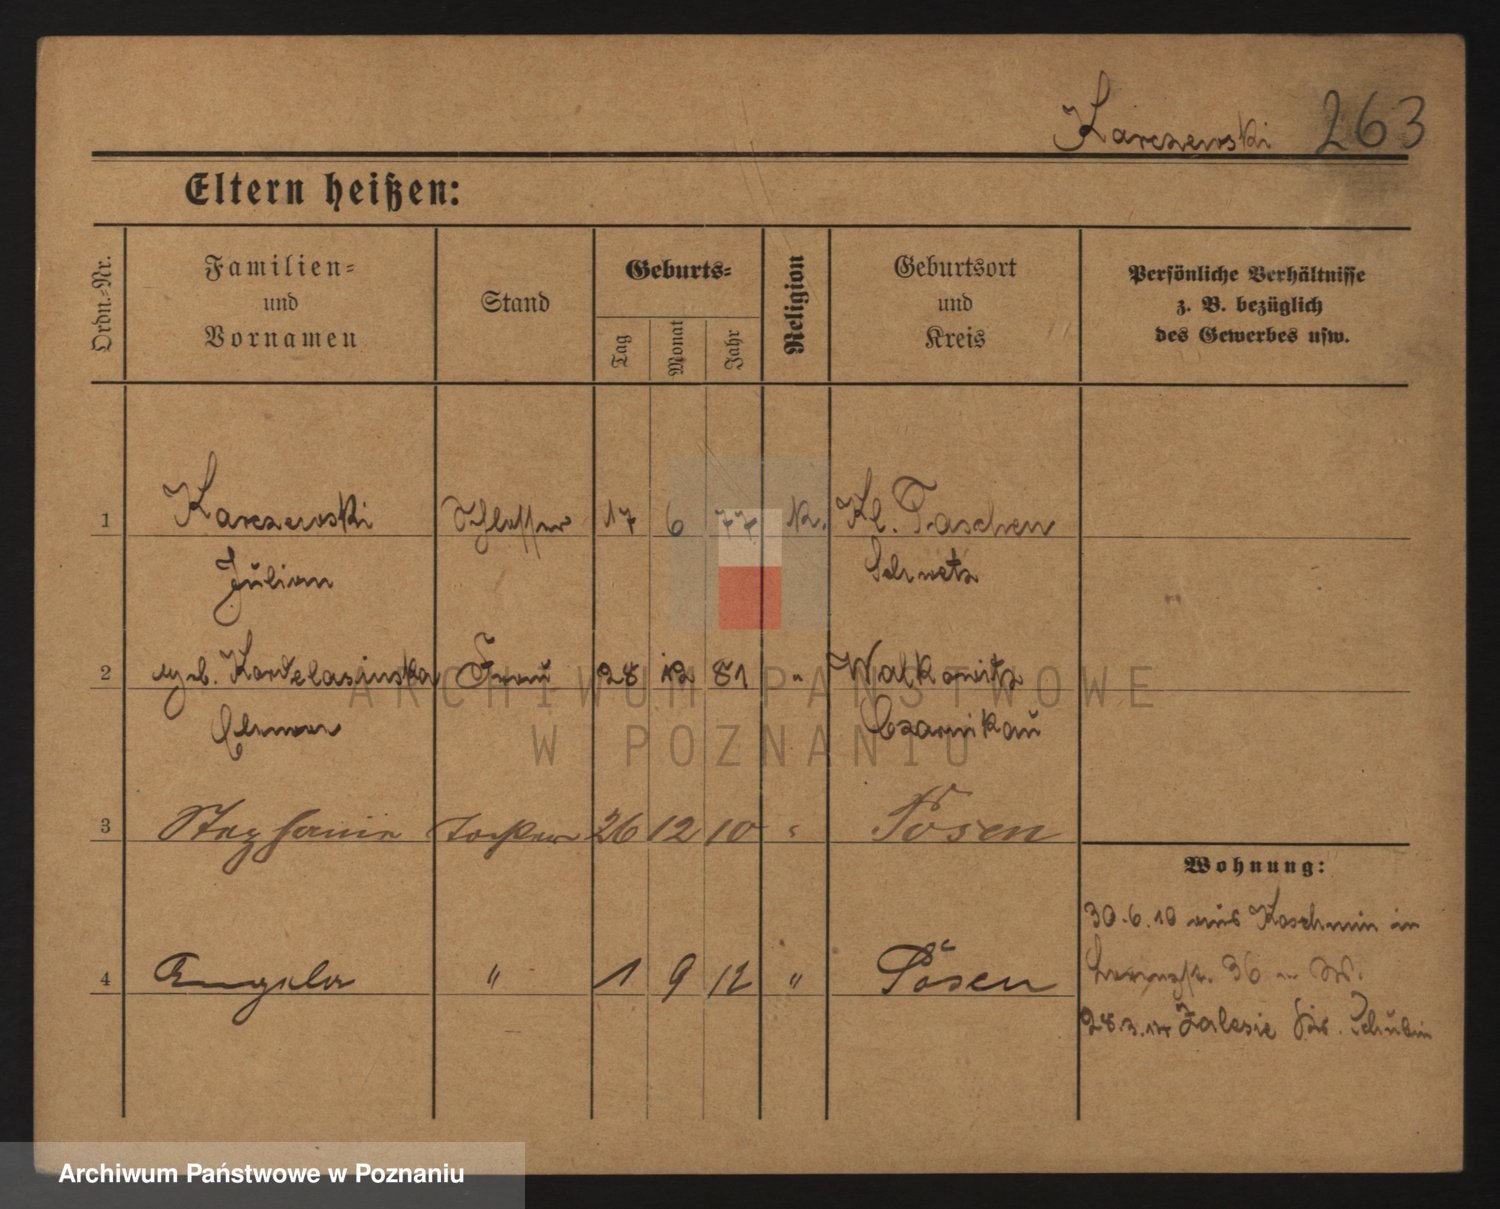 Karczewski 263
Eltern heißen:
Ordn.=Nr.
Familien=
und
Vornamen
Stand
Geburts=
Tag
Monat
Jahr
Religion
Geburtsort
und
Kreis
Persönliche Verhältnisse
z. B. bezüglich
des Gewerbes usw.
1 Karczewski Schlosser 17 6 77 k. Kl. Taschen
Julian
2 geb. Frau 28 12 81 " Walkowitz
Czarnikau
3 Stephanie Tochter 26 12 10 " Posen
Wohnung:
30.6.10 aus Koschmin in
4 Angela " 1 9 12 " Posen
36
Zalesie Schubin
ARCHIWUM PAŃSTWOWE
W POZNANIU
Archiwum Państwowe w Poznaniu